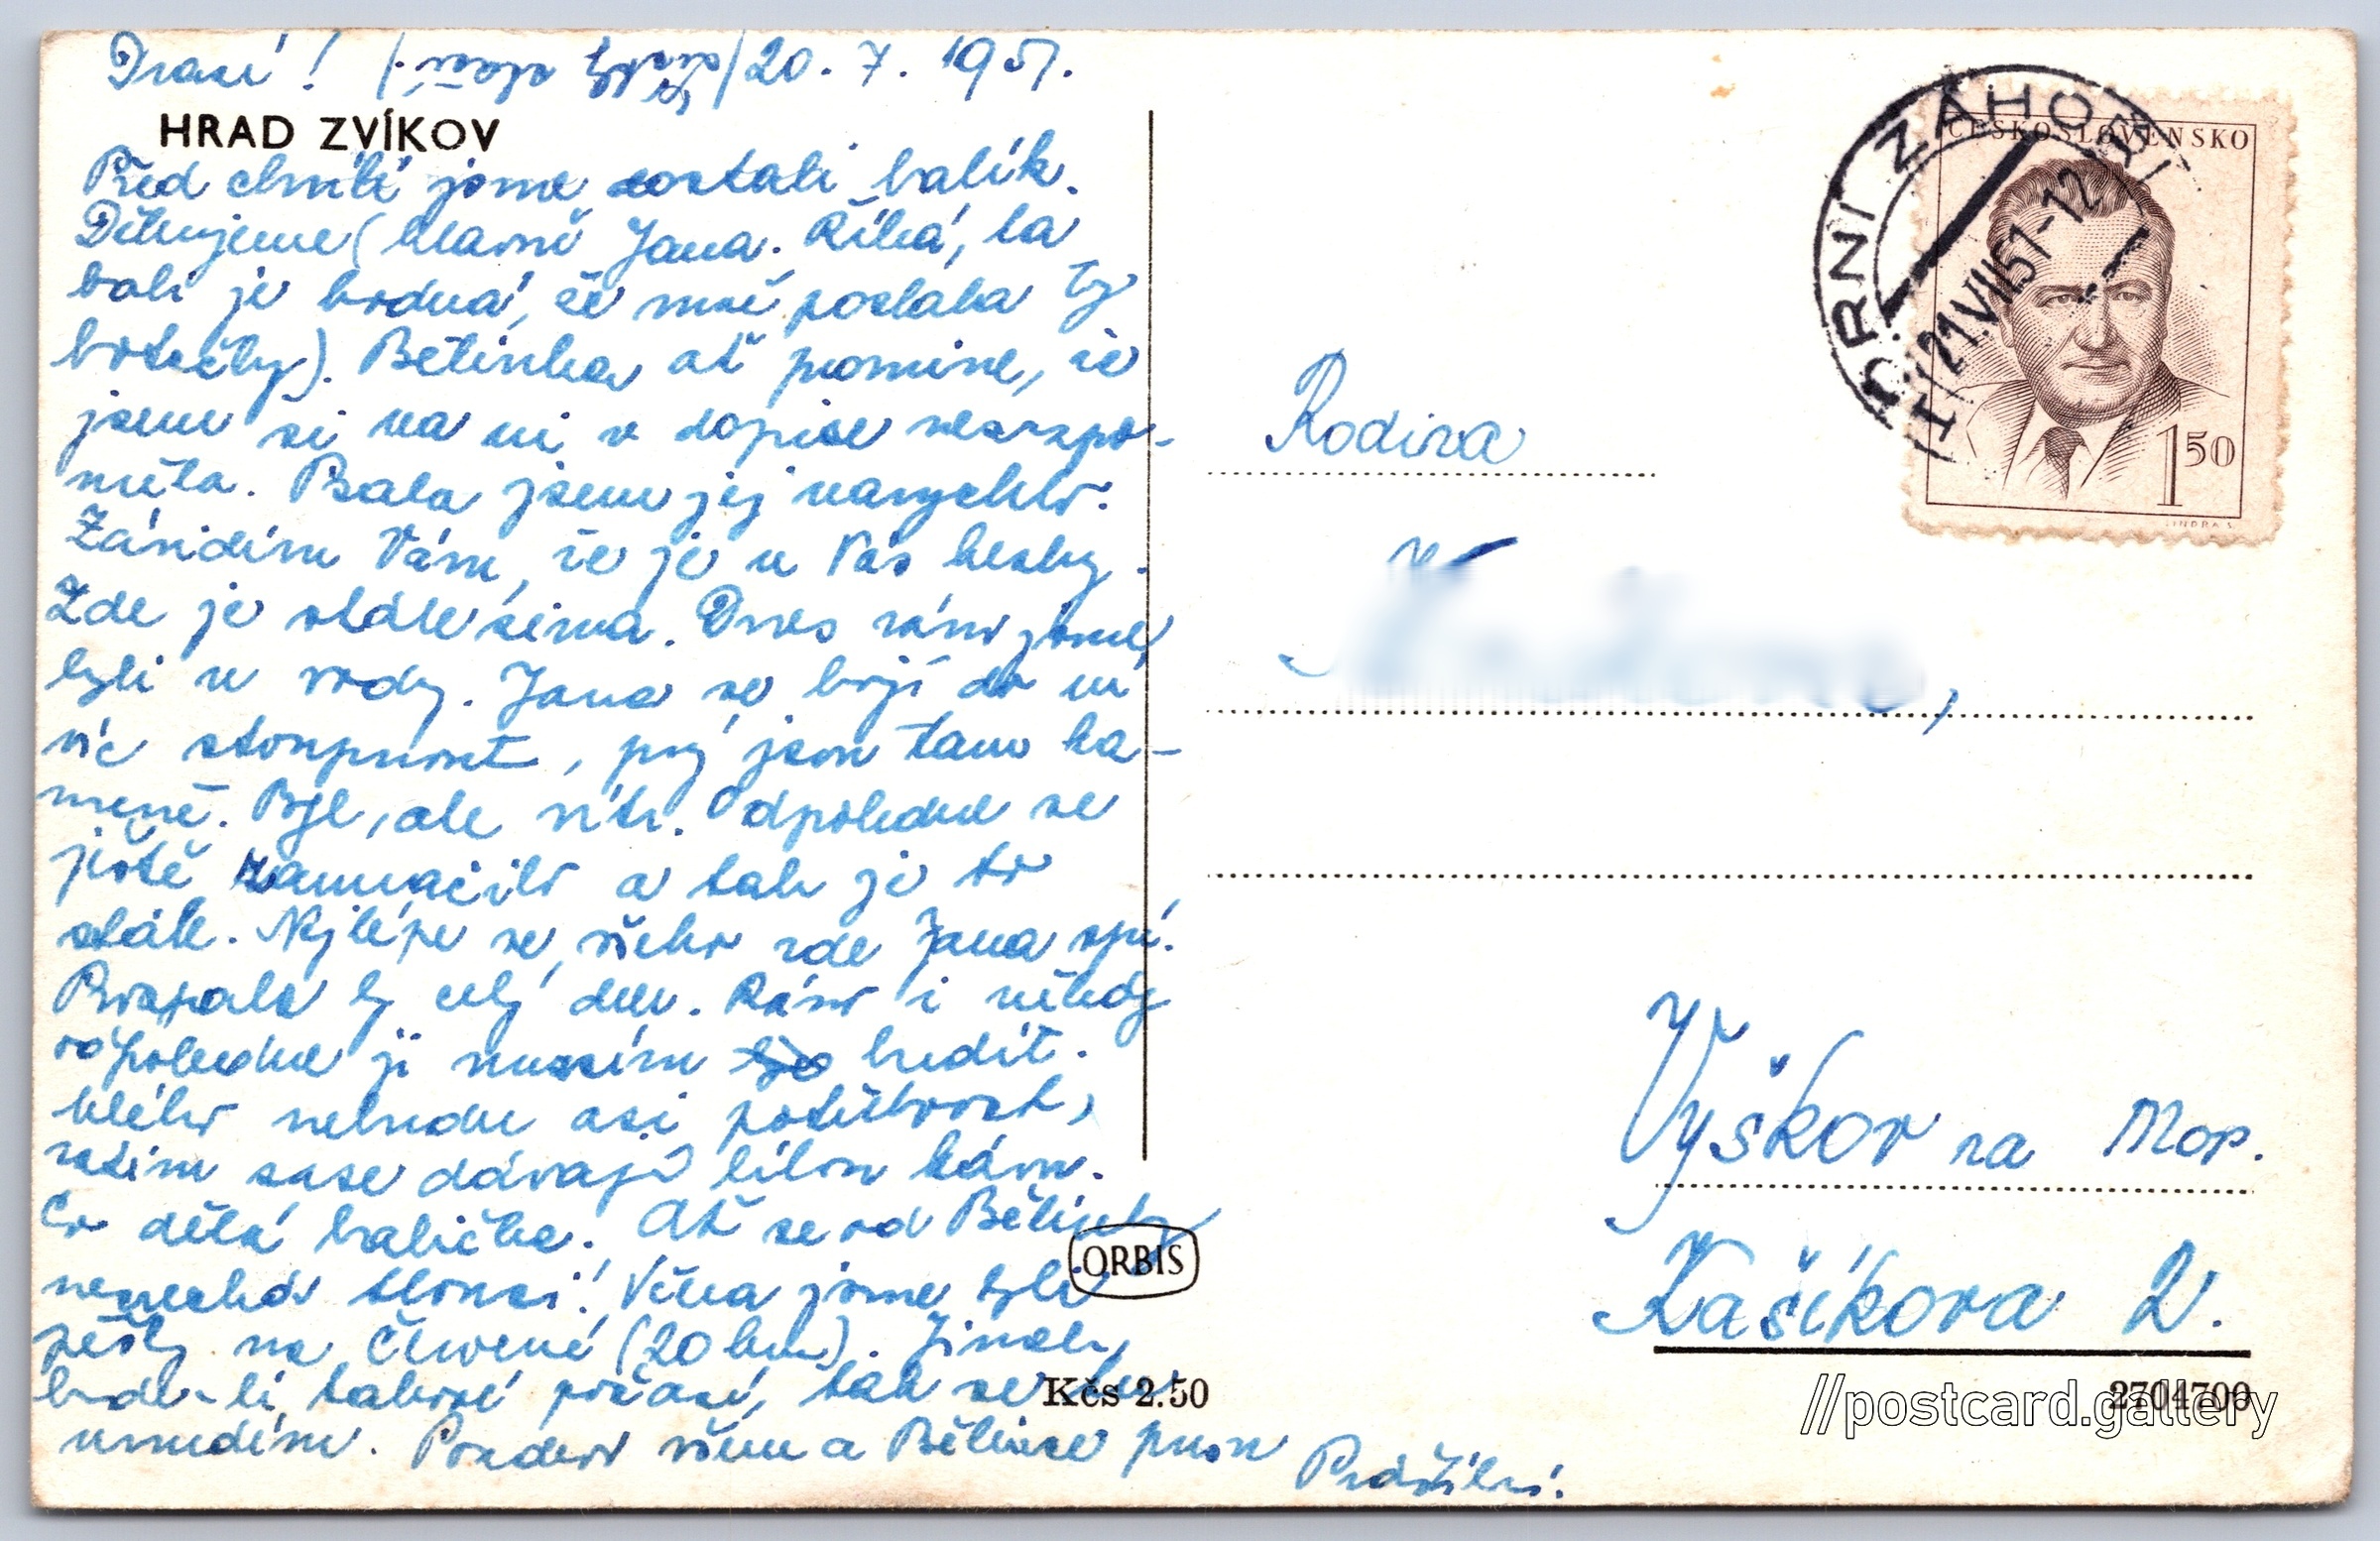 Drazí! 20. 7. 1951.
HRAD ZVÍKOV
Před chvílí jsme dostali balík.
Děkujeme (hlavně Jana. Říká, ta
bali je hodná, že mně poslala ty
botičky). Bětinka ať promine, že
jsem si na ni v dopise nevzpo-
měla. Psala jsem jej narychlo.
Závidím Vám, že je u Vás hezky.
Zde je stále zima. Dnes ráno jsme
byli u vody. Jana se bojí do ní
víc stoupnout, prý jsou tam ka-
meně. Byl, ale vítr. Odpoledne se
ještě zamračilo a tak je to
stále. Nejlépe se všeho zde Jana spí.
Prospala by celý den. Ráno i někdy
odpoledne ji musím budit.
Mléko nebudu asi potřebovat,
zatím zase dávají bílou kávu.
Co dělá babička? Ať se od Bětinky
nenechá tlouci! Včera jsme byli
pěšky na Červené (20 km). Jinak,
bude-li takové počasí, tak se
unudíme. Pozdrav všem a Bětince pusu
Prdážilni.
ORBIS
Kčs 2.50
ČESKOSLOVENSKO
1 50
JINDRA S.
HORNÍ ZÁHOŘÍ
21.VII.51-12
Rodina
Vyškov na Mor.
Kašíkova 2.
2704700
//postcard.gallery